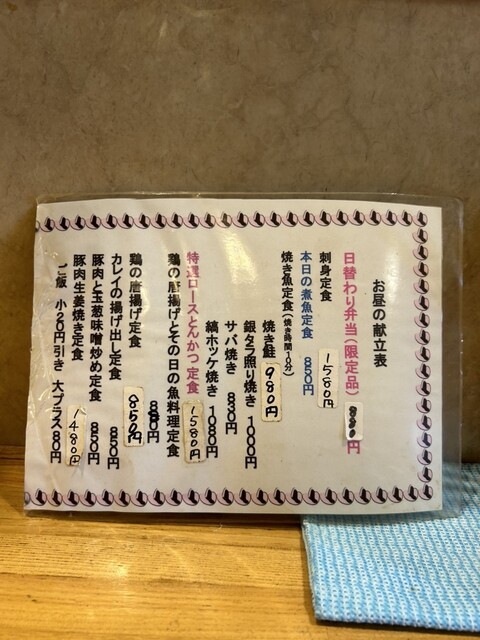 お昼の献立表
日替わり弁当(限定品) 880円
刺身定食 1580円
本日の煮魚定食 880円
焼き魚定食(焼き時間10分)
焼き鮭 980円
銀タラ照り焼き 1100円
サバ焼き 830円
縞ホッケ焼き 1080円
特選ロースとんかつ定食 1580円
鶏の唐揚げとその日の魚料理定食
鶏の唐揚げ定食 850円
カレイの揚げ出し定食 850円
豚肉と玉葱味噌炒め定食 850円
豚肉生姜焼き定食 1480円
ご飯 小20円引き 大プラス80円